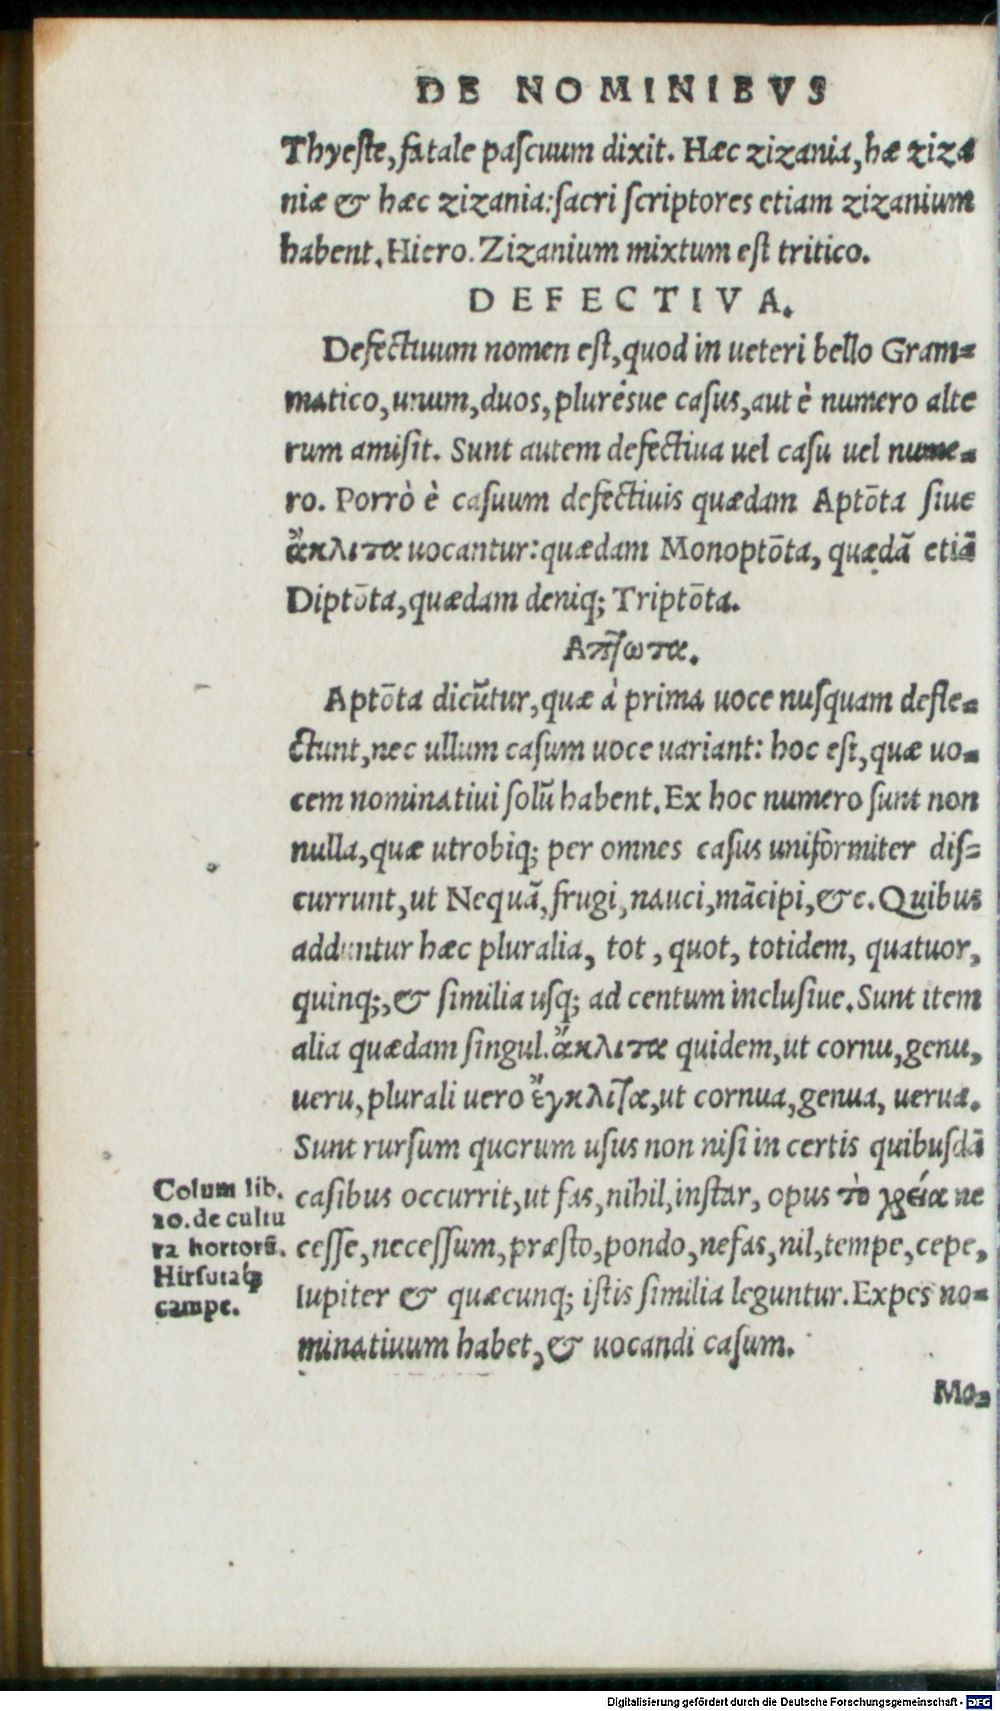 DE NOMINIBVS
Thyeste, fatale pascuum dixit. Hæc zizania, hæ ziza
niæ & hæc zizania: sacri scriptores etiam zizanium
habent. Hiero. Zizanium mixtum est tritico.
DEFECTIVA.
Defectiuum nomen est, quod in ueteri bello Gram-
matico, unum, duos, plurésue casus, aut è numero alte
rum amisit. Sunt autem defectiua uel casu uel nume-
ro. Porrò è casuum defectiuis quædam Aptōta siue
ἄκλιτα uocantur: quædam Monoptōta, quædā etiā
Diptōta, quædam deniq; Triptōta.
Απτωτα.
Aptōta dicūtur, quæ à prima uoce nusquam defle-
ctunt, nec ullum casum uoce uariant: hoc est, quæ uo-
cem nominatiui solū habent. Ex hoc numero sunt non
nulla, quæ utrobiq; per omnes casus uniformiter dis-
currunt, ut Nequā, frugi, nauci, mācipi, &c. Quibus
adduntur hæc pluralia, tot, quot, totidem, quatuor,
quinq;, & similia usq; ad centum inclusiue. Sunt item
alia quædam singul. ἄκλιτα quidem, ut cornu, genu,
ueru, plurali uero ἔγκλιτα, ut cornua, genua, uerua.
Sunt rursum quorum usus non nisi in certis quibusdā
casibus occurrit, ut fas, nihil, instar, opus τὸ χρεία ne
cesse, necessum, præsto, pondo, nefas, nil, tempe, cepe,
Iupiter & quæcunq; istis similia leguntur. Expes no-
minatiuum habet, & uocandi casum.
Colum lib.
10. de cultu
ra hortorū.
Hirsutaq;
campe.
Mo-
Digitalisierung gefördert durch die Deutsche Forschungsgemeinschaft - DFG